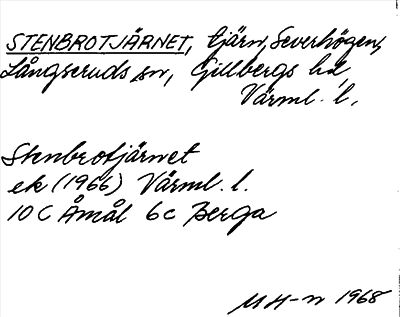 STENBROTJÄRNET, tjärn, Severhögen,
Långseruds sn, Gillbergs hd,
Värml. l.
Stenbrotjärnet
ek (1966) Värml. l.
10 C Åmål 6c Berga
MH-n 1968